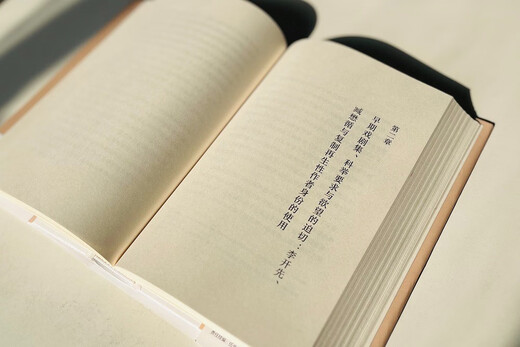 第二章
早期戏剧集、科举要求与欲望的迫切：李开先、
臧懋循与复制再生性作者身份的使用